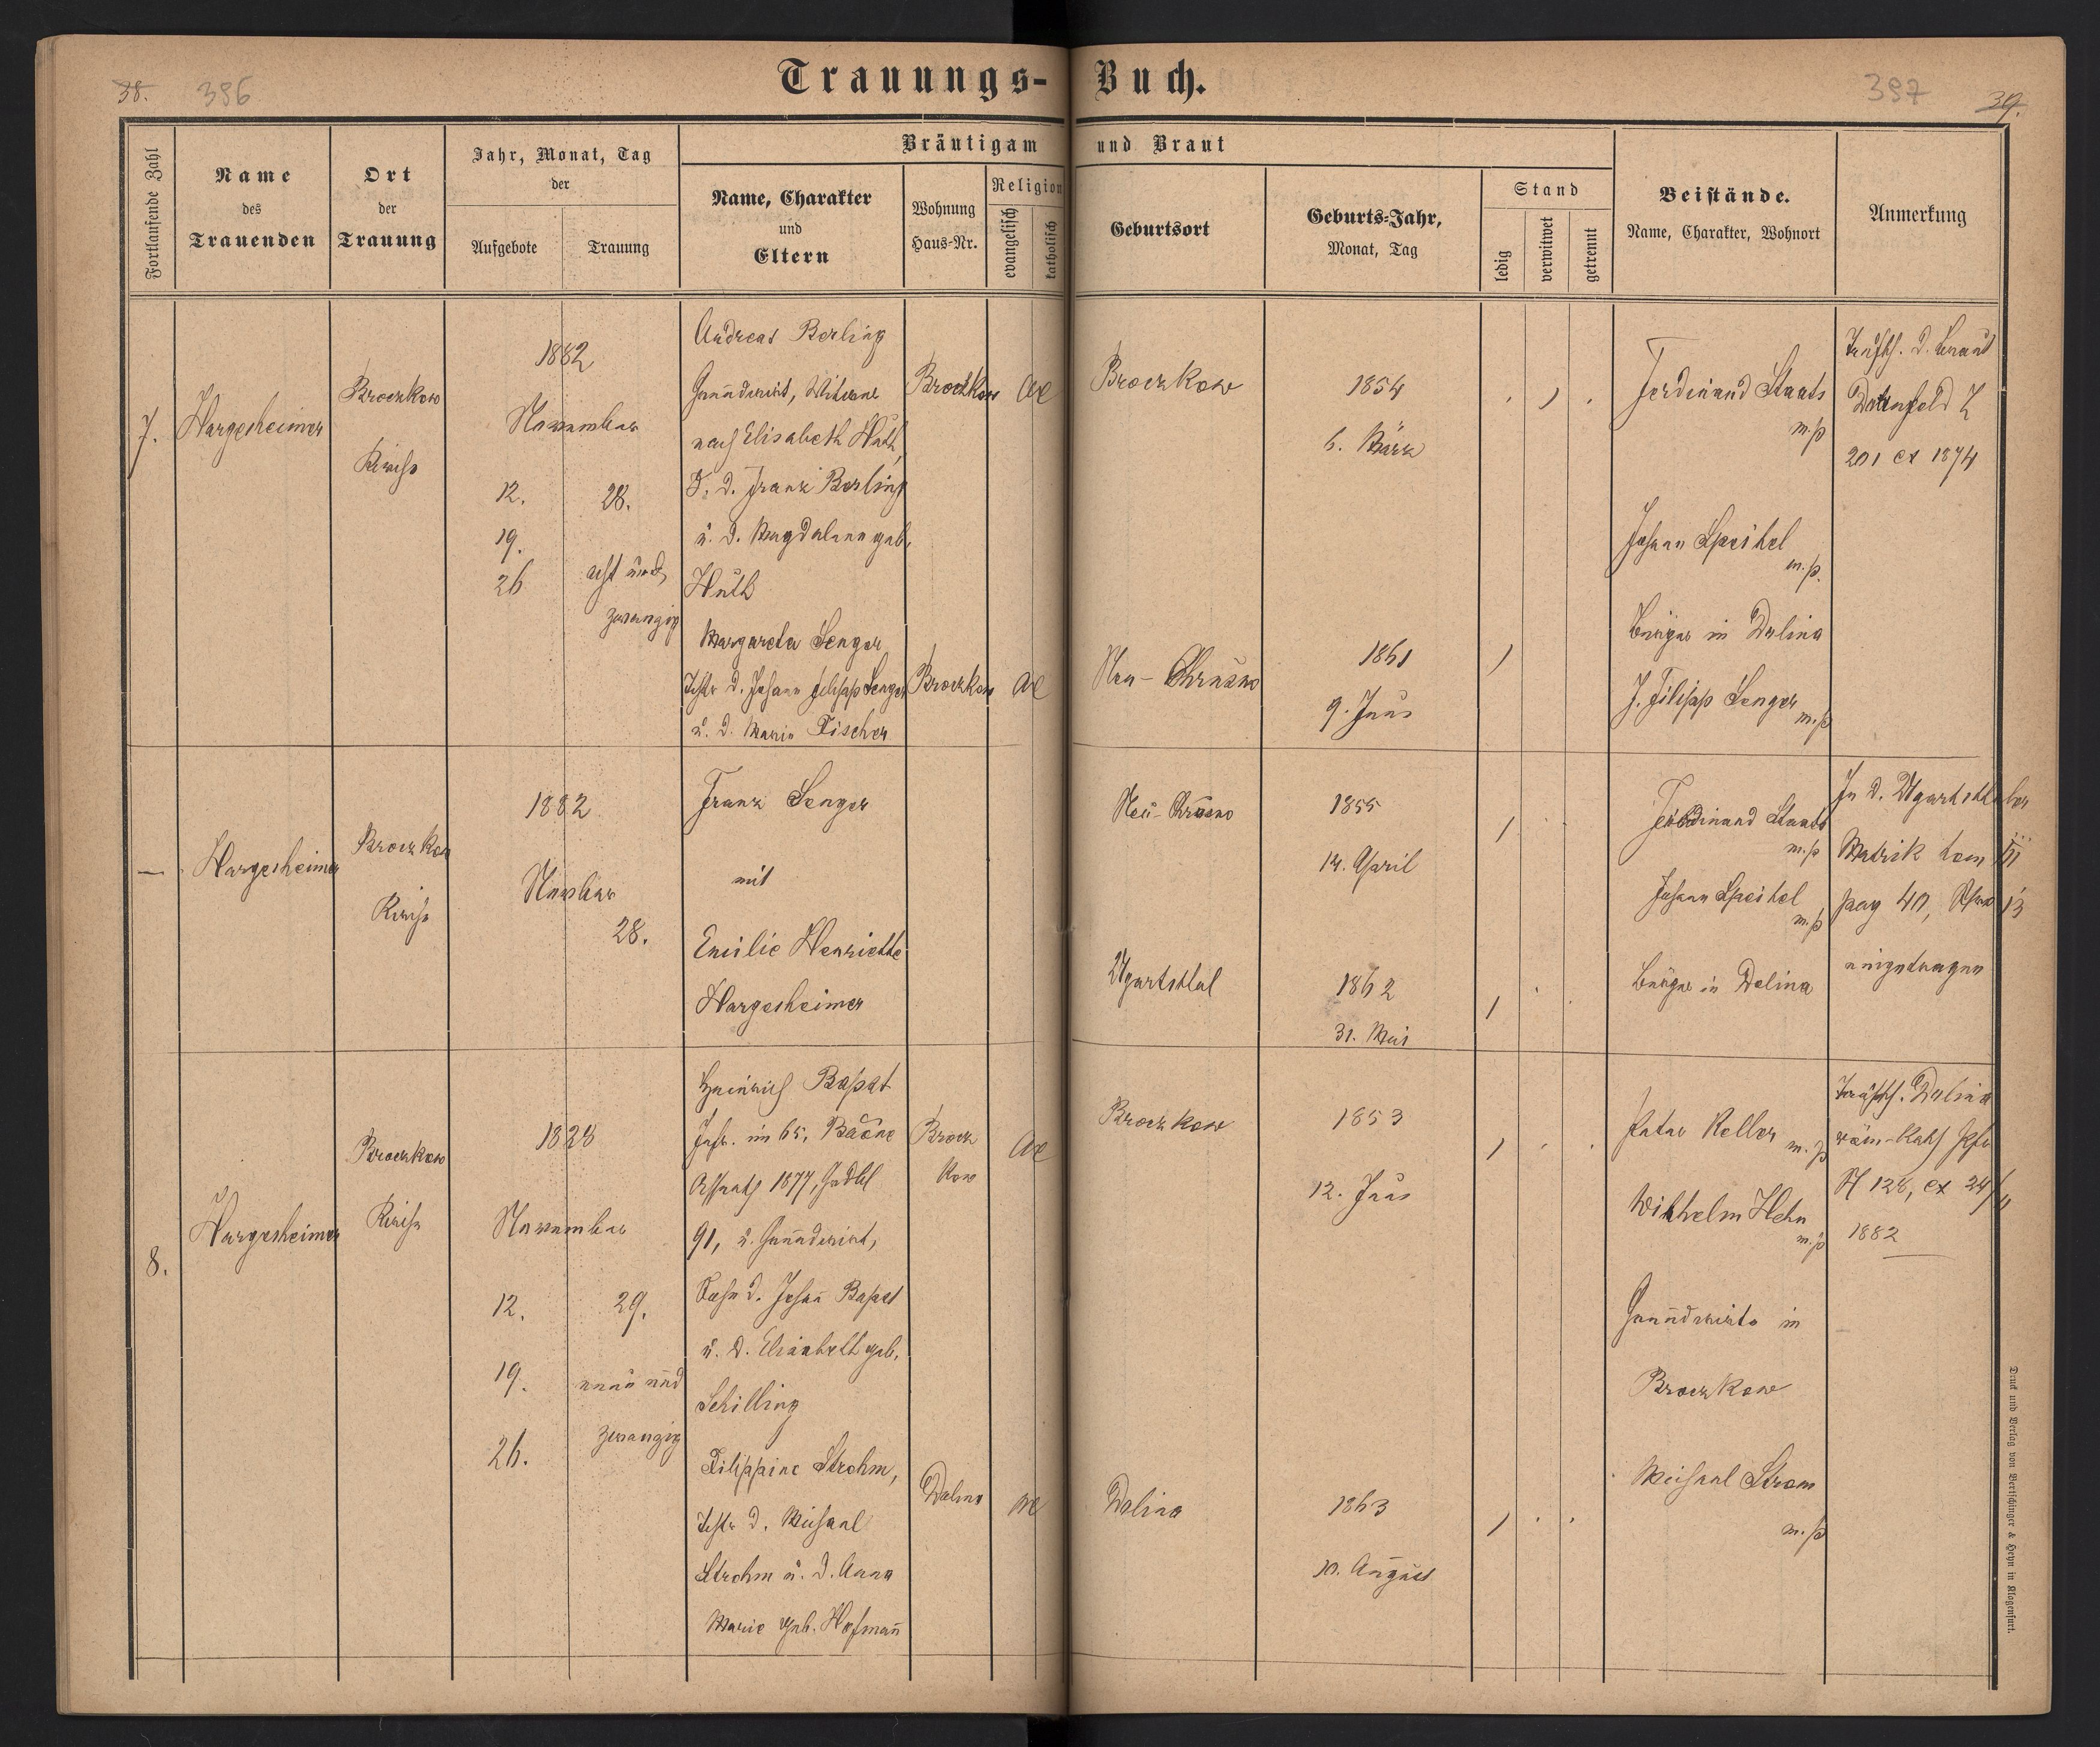 38. 396
Trauungs-Buch.
397 39.
Fortlaufende Zahl
Name
des
Trauenden
Ort
der
Trauung
Jahr, Monat, Tag
der
Aufgebote
Trauung
Bräutigam und Braut
Name, Charakter
und
Eltern
Wohnung
Haus-Nr.
Religion
evangelisch
katholisch
Geburtsort
Geburts-Jahr,
Monat, Tag
Stand
ledig
verwitwet
getrennt
Beistände.
Name, Charakter, Wohnort
Anmerkung
7.
Hargesheimer
Broczkow
Kirche
1882
November
12.
19.
26
28.
acht und
zwanzig
Andreas Berling
Grundwirt, Witwer
nach Elisabeth Huth,
S. d. Franz Berling
u. d. Magdalena geb.
Huth
Broczkow
Broczkow
1854
6. März
Margareta Senger
Tochter d. Johann Filipp Senger
u. d. Maria Fischer
Broczkow
Neu-Chrusno
1861
9. Juni
Ferdinand Staats
m.p
Johann Speihel
m.p.
Bürger in Dolina
J. Filipp Senger
m.p
Taufsch. d. Braut
Dornfeld Z
201 ex 1874
—
Hargesheimer
Broczkow
Kirche
1882
November
28.
Franz Senger
mit
Emilie Henriette
Hargesheimer
Neu-Chrusno
1855
14. April
Ugartsthal
1862
31. Mai
Ferdinand Staats
m.p
Johann Speihel
m.p
Bürger in Dolina
In d. Ugartsthaler
Matrik tom III
pag 40, 13
eingetragen
8.
Hargesheimer
Broczkow
Kirche
1828
November
12.
19.
26.
29.
neun und
zwanzig
Heinrich Bapst
Inf. im 65.
1877,
91, u. Grundwirt,
Sohn d. Johann Bapst
u. d. Elisabeth geb.
Schilling
Brocz
kow
Broczkow
1853
12. Juni
Filippine Strohm,
Tochter d. Michael
Strohm u. d. Anna
Marie geb. Hofmann
Dolina
Dolina
1863
10. August
Peter Keller
m.p
Wilhelm Hehn
m.p
Grundwirte in
Broczkow
Michael Strom
m.p
Taufsch. Dolina
röm-kath
N 128, ex 24/11
1882
Druck und Verlag von Bertschinger & Heyn in Klagenfurt.